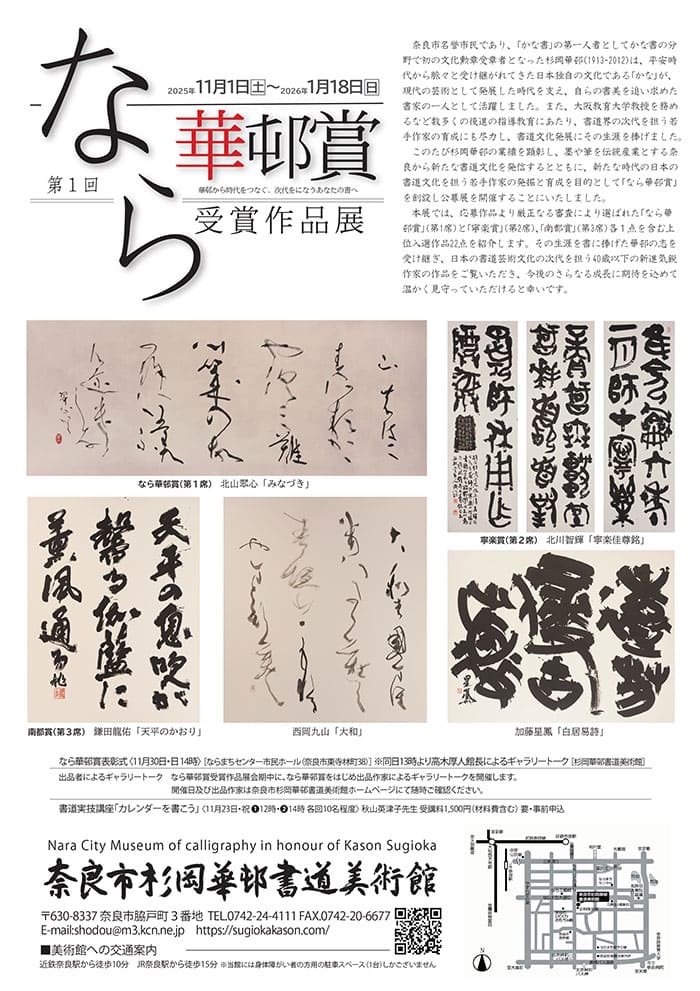 なら
第1回
2025年11月1日㊏～2026年1月18日㊐
華邨賞
華邨から時代をつなぐ、次代をになうあなたの書へ
受賞作品展
奈良市名誉市民であり、「かな書」の第一人者としてかな書の分
野で初の文化勲章受章者となった杉岡華邨(1913-2012)は、平安時
代から脈々と受け継がれてきた日本独自の文化である「かな」が、
現代の芸術として発展した時代を支え、自らの書美を追い求めた
書家の一人として活躍しました。また、大阪教育大学教授を務め
るなど数多くの後進の指導教育にあたり、書道界の次代を担う若
手作家の育成にも尽力し、書道文化発展にその生涯を捧げました。
このたび杉岡華邨の業績を顕彰し、墨や筆を伝統産業とする奈
良から新たな書道文化を発信するとともに、新たな時代の日本の
書道文化を担う若手作家の発掘と育成を目的として「なら華邨賞」
を創設し公募展を開催することにいたしました。
本展では、応募作品より厳正なる審査により選ばれた「なら華
邨賞」(第1席)と「寧楽賞」(第2席)、「南都賞」(第3席)各1点を含む上
位入選作品22点を紹介します。その生涯を書に捧げた華邨の志を
受け継ぎ、日本の書道芸術文化の次代を担う40歳以下の新進気鋭
作家の作品をご覧いただき、今後のさらなる成長に期待を込めて
温かく見守っていただけると幸いです。
なら華邨賞(第1席) 北山翠心「みなづき」
寧楽賞(第2席) 北川智輝「寧楽佳尊銘」
天平の息吹が
馨る伽藍に
薫風通う
南都賞(第3席) 鎌田龍佑「天平のかおり」
西岡九山「大和」
加藤星鳳「白居易詩」
なら華邨賞表彰式〈11月30日・日 14時〉[ならまちセンター市民ホール(奈良市東寺林町38)] ※同日13時より高木厚人館長によるギャラリートーク[杉岡華邨書道美術館]
出品者によるギャラリートーク なら華邨賞受賞作品展会期中に、なら華邨賞をはじめ出品作家によるギャラリートークを開催します。
開催日及び出品作家は奈良市杉岡華邨書道美術館ホームページにて随時ご確認ください。
書道実技講座「カレンダーを書こう」〈11月23日・祝 ❶12時・❷14時 各回10名程度〉秋山英津子先生 受講料1,500円(材料費含む) 要・事前申込
Nara City Museum of calligraphy in honour of Kason Sugioka
奈良市杉岡華邨書道美術館
〒630-8337 奈良市脇戸町3番地 TEL.0742-24-4111 FAX.0742-20-6677
E-mail:shodou@m3.kcn.ne.jp https://sugiokakason.com/
■美術館への交通案内
近鉄奈良駅から徒歩10分 JR奈良駅から徒歩15分 ※当館には身体障がい者の方用の駐車スペース(1台)しかございません
N